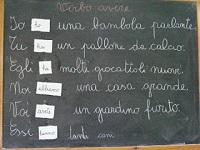 Verbo avere
Io ho una bambola parlante.
Tu hai un pallone da calcio.
Egli ha molti giocattoli nuovi.
Noi abbiamo una casa grande.
Voi avete un giardino fiorito.
Essi hanno tanti cani